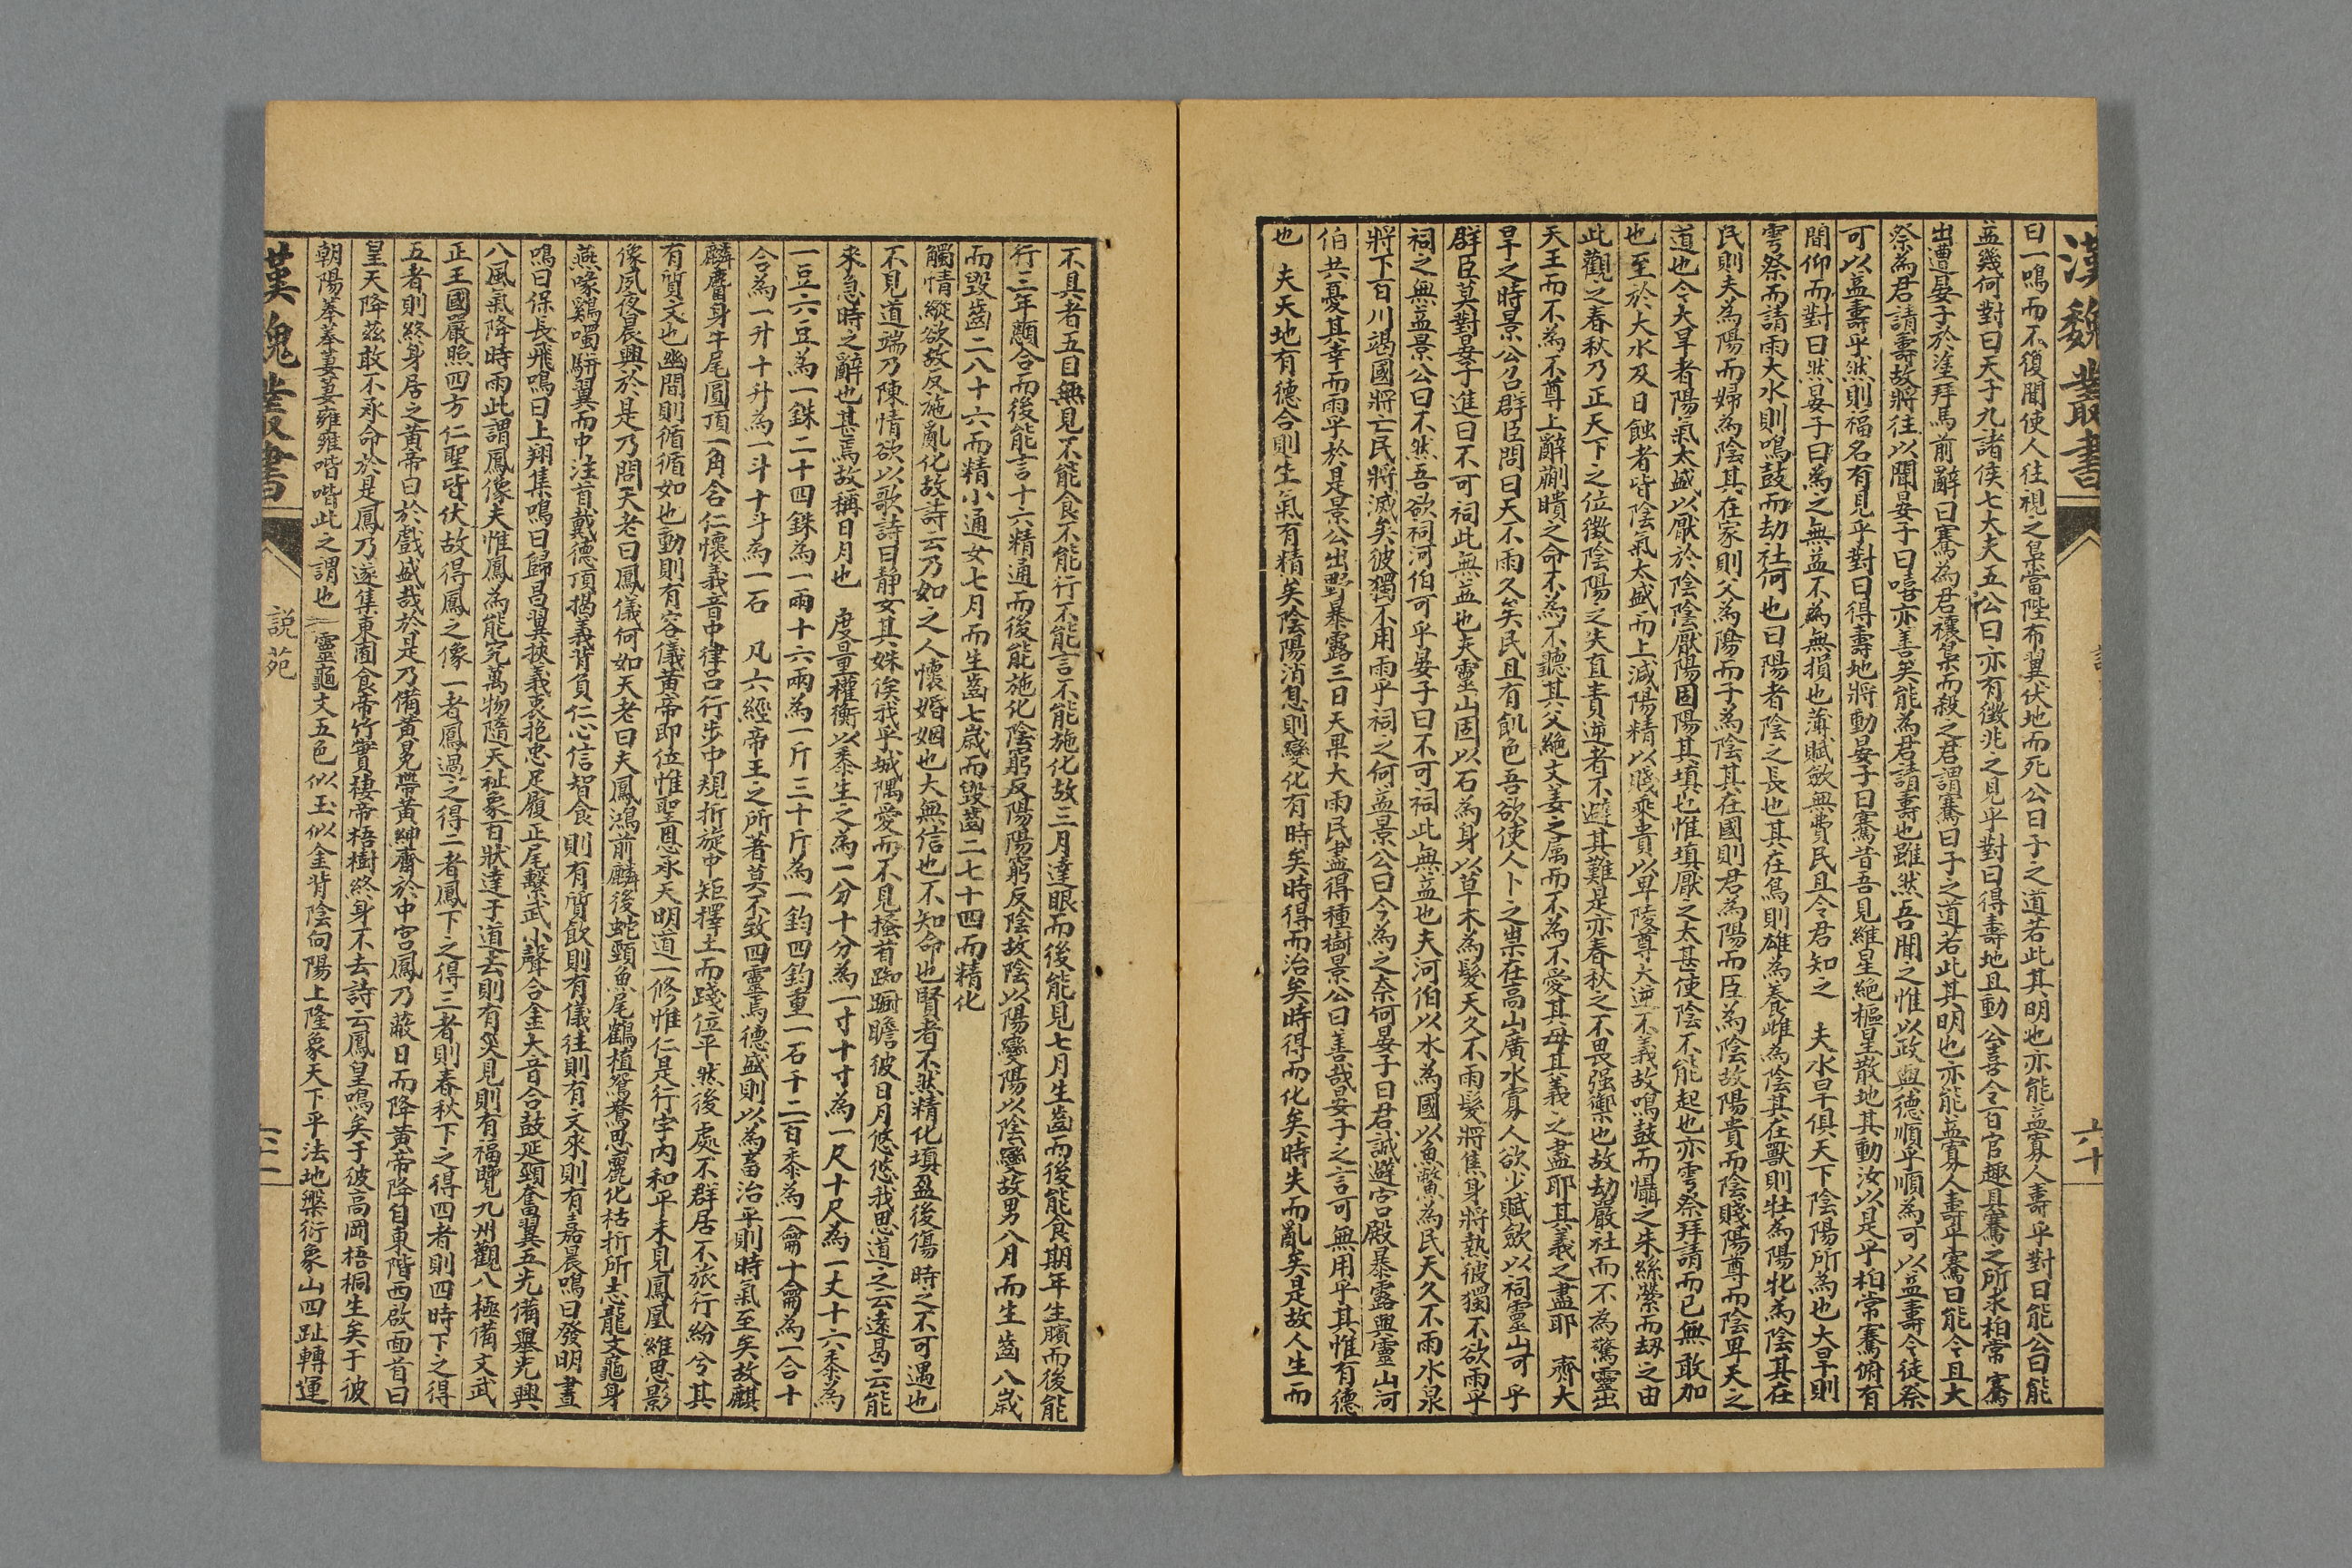 漢魏叢書
六十
曰一鳴而不復聞使人往視之梟當陛布翼伏地而死公曰子之道若此其明也亦能益寡人壽乎對曰能公曰能
益幾何對曰天子九諸侯七大夫五公曰亦有徵兆之見乎對曰得壽地且動公喜令百官趣具騫之所求柏常騫
出遭晏子於塗拜馬前辭曰騫為君禳梟而殺之君謂騫曰子之道若此其明也亦能益寡人壽乎騫曰能今且大
祭為君請壽故將往以聞晏子曰嘻亦善矣能為君請壽也雖然吾聞之惟以政與德順乎神為可以益壽今徒祭
可以益壽乎然則福名有見乎對曰得壽地將動晏子曰騫昔吾見維星絕樞星散地其動汝以是乎柏常騫俯有
間仰而對曰然晏子曰為之無益不為無損也薄賦斂無費民且令君知之　夫水旱俱天下陰陽所為也大旱則
雩祭而請雨大水則鳴鼓而劫社何也曰陽者陰之長也其在鳥則雄為陽雌為陰其在獸則牡為陽牝為陰其在
民則夫為陽而婦為陰其在家則父為陽而子為陰其在國則君為陽而臣為陰故陽貴而陰賤陽尊而陰卑天之
道也今大旱者陽氣太盛以厭於陰陰厭陽固陽其填也惟填厭之太甚使陰不能起也亦雩祭拜請而已無敢加
也至於大水及日蝕者皆陰氣太盛而上減陽精以賤乘貴以卑陵尊大逆不義故鳴鼓而懾之朱絲縈而劫之由
此觀之春秋乃正天下之位徵陰陽之失直責逆者不避其難是亦春秋之不畏强禦也故劫嚴社而不為驚靈出
天王而不為不尊上辭蒯聵之命不為不聽其父絕文姜之屬而不為不愛其母其義之盡耶其義之盡耶　齊大
旱之時景公召群臣問曰天不雨久矣民且有飢色吾欲使人卜之祟在高山廣水寡人欲少賦斂以祠靈山可乎
群臣莫對晏子進曰不可祠此無益也夫靈山固以石為身以草木為髮天久不雨髮將焦身將熱彼獨不欲雨乎
祠之無益景公曰不然吾欲祠河伯可乎晏子曰不可祠此無益也夫河伯以水為國以魚鱉為民天久不雨水泉
將下百川竭國將亡民將滅矣彼獨不用雨乎祠之何益景公曰今為之奈何晏子曰君誠避宮殿暴露與靈山河
伯共憂其幸而雨乎於是景公出野暴露三日天果大雨民盡得種樹景公曰善哉晏子之言可無用乎其惟有德
也　夫天地有德合則生氣有精矣陰陽消息則變化有時矣時得而治矣時得而化矣時失而亂矣是故人生而
不具者五目無見不能食不能行不能言不能施化故三月達眼而後能見七月生齒而後能食期年生臏而後能
行三年顖合而後能言十六精通而後能施化陰窮反陽陽窮反陰故陰以陽變陽以陰變故男八月而生齒八歲
而毀齒二八十六而精小通女七月而生齒七歲而毀齒二七十四而精化
觸情縱欲故反施亂化故詩云乃如之人懷婚姻也大無信也不知命也賢者不然精化填盈後傷時之不可遇也
不見道端乃陳情欲以歌詩曰靜女其姝俟我乎城隅愛而不見搔首踟躕瞻彼日月悠悠我思道之云遠曷云能
來急時之辭也甚焉故稱日月也　度量權衡以黍生之為一分十分為一寸十寸為一尺十尺為一丈十六黍為
一豆六豆為一銖二十四銖為一兩十六兩為一斤三十斤為一鈞四鈞重一石千二百黍為一龠十龠為一合十
合為一升十升為一斗十斗為一石　凡六經帝王之所著莫不致四靈焉德盛則以為畜治平則時氣至矣故麒
麟麕身牛尾圓頂一角含仁懷義音中律呂行步中規折旋中矩擇土而踐位平然後處不群居不旅行紛兮其
有質文也幽間則循循如也動則有容儀黃帝即位惟聖恩承天明道一修惟仁是行宇內和平未見鳳凰維思影
像夙夜晨興於是乃問天老曰鳳儀何如天老曰夫鳳鴻前麟後蛇頸魚尾鶴植鴛鴦思麗化枯折所志龍文龜身
燕喙鷄噣駢翼而中注首戴德頂揭義背負仁心信智食則有質飲則有儀往則有文來則有嘉晨鳴曰發明晝
鳴曰保長飛鳴曰上翔集鳴曰歸昌翼挾義衷抱忠足履正尾繫武小聲合金大音合鼓延頸奮翼五光備舉光興
八風氣降時雨此謂鳳像夫惟鳳為能究萬物隨天祉象百狀達于道去則有災見則有福覽九州觀八極備文武
正王國嚴照四方仁聖皆伏故得鳳之像一者鳳過之得二者鳳下之得三者則春秋下之得四者則四時下之得
五者則終身居之黃帝曰於戲盛哉於是乃備黃冕帶黃紳齋於中宮鳳乃蔽日而降黃帝降自東階西啟面首曰
皇天降茲敢不承命於是鳳乃遂集東囿食帝竹實棲帝梧樹終身不去詩云鳳皇鳴矣于彼高岡梧桐生矣于彼
朝陽菶菶萋萋雍雍喈喈此之謂也　靈龜文五色似玉似金背陰向陽上隆象天下平法地槃衍象山四趾轉運
漢魏叢書
說苑